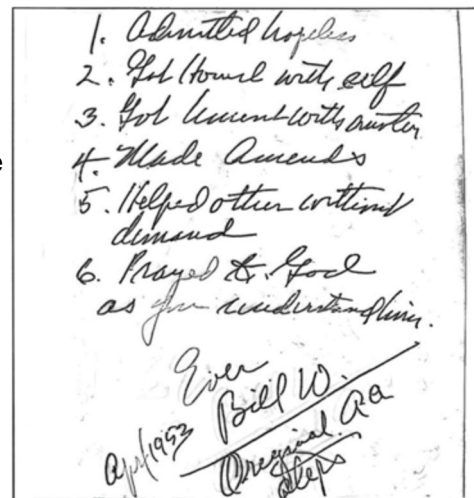 1. Admitted hopeless
2. Got Honest with self
3. Got honest with another
4. Made Amends
5. Helped other without
demand
6. Prayed to God
as you understand him.
e
Ever
Bill W.
Apr/1953
Original AA
Steps